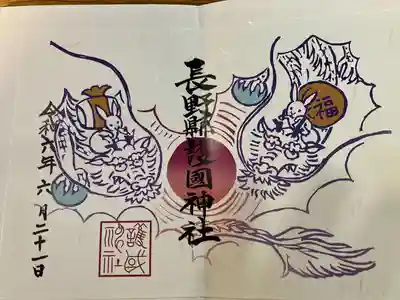 長野縣護國神社
福
令和六年 六月二十一日
護国神社